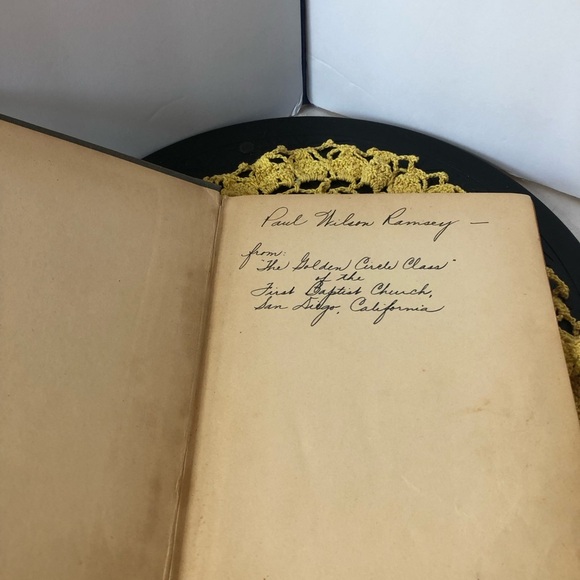 Paul Wilson Ramsey —
from:
"The Golden Circle Class"
of the
First Baptist Church,
San Diego, California